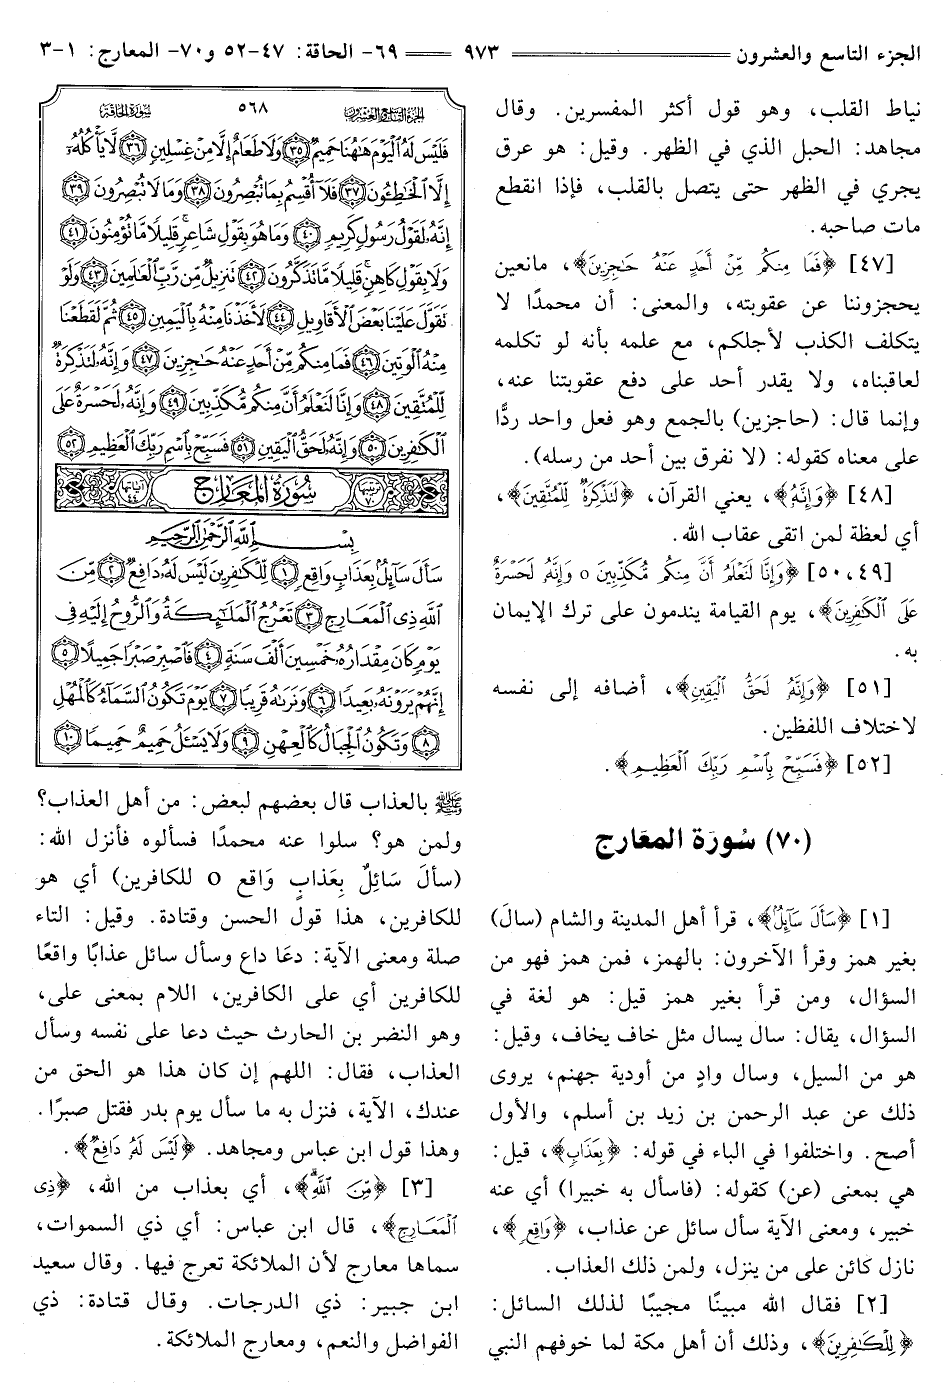 الجزء التاسع والعشرون ٩٧٣ ٦٩- الحاقة: ٤٧-٥٢ و٧٠- المعارج: ١-٣
نياط القلب، وهو قول أكثر المفسرين. وقال
مجاهد: الحبل الذي في الظهر. وقيل: هو عرق
يجري في الظهر حتى يتصل بالقلب، فإذا انقطع
مات صاحبه.
[٤٧] ﴿فَمَا مِنكُم مِّنْ أَحَدٍ عَنْهُ حَٰجِزِينَ﴾، مانعين
يحجزوننا عن عقوبته، والمعنى: أن محمدًا لا
يتكلف الكذب لأجلكم، مع علمه بأنه لو تكلمه
لعاقبناه، ولا يقدر أحد على دفع عقوبتنا عنه،
وإنما قال: (حاجزين) بالجمع وهو فعل واحد ردًّا
على معناه كقوله: (لا نفرق بين أحد من رسله).
[٤٨] ﴿وَإِنَّهُ﴾، يعني القرآن، ﴿لَتَذْكِرَةٌ لِّلْمُتَّقِينَ﴾،
أي لعظة لمن اتقى عقاب الله.
[٥٠،٤٩] ﴿وَإِنَّا لَنَعْلَمُ أَنَّ مِنكُم مُّكَذِّبِينَ ٥ وَإِنَّهُ لَحَسْرَةٌ
عَلَى الْكَٰفِرِينَ﴾، يوم القيامة يندمون على ترك الإيمان
به.
[٥١] ﴿وَإِنَّهُ لَحَقُّ الْيَقِينِ﴾، أضافه إلى نفسه
لاختلاف اللفظين.
[٥٢] ﴿فَسَبِّحْ بِاسْمِ رَبِّكَ الْعَظِيمِ﴾.
(٧٠) سُورَة المعَارج
[١] ﴿سَأَلَ سَآئِلٌ﴾، قرأ أهل المدينة والشام (سالَ)
بغير همز وقرأ الآخرون: بالهمز، فمن همز فهو من
السؤال، ومن قرأ بغير همز قيل: هو لغة في
السؤال، يقال: سال يسال مثل خاف يخاف، وقيل:
هو من السيل، وسال وادٍ من أودية جهنم، يروى
ذلك عن عبد الرحمن بن زيد بن أسلم، والأول
أصح. واختلفوا في الباء في قوله: ﴿بِعَذَابٍ﴾، قيل:
هي بمعنى (عن) كقوله: (فاسأل به خبيرا) أي عنه
خبير، ومعنى الآية سأل سائل عن عذاب، ﴿وَاقِعٍ﴾،
نازل كائن على من ينزل، ولمن ذلك العذاب.
[٢] فقال الله مبينًا مجيبًا لذلك السائل:
﴿لِلْكَٰفِرِينَ﴾، وذلك أن أهل مكة لما خوفهم النبي
الجزء التاسع والعشرون ٥٦٨ سورة الحاقة
فَلَيْسَ لَهُ الْيَوْمَ هَٰهُنَا حَمِيمٌ ٣٥ وَلَا طَعَامٌ إِلَّا مِنْ غِسْلِينٍ ٣٦ لَّا يَأْكُلُهُ
إِلَّا الْخَٰطِـُٔونَ ٣٧ فَلَآ أُقْسِمُ بِمَا تُبْصِرُونَ ٣٨ وَمَا لَا تُبْصِرُونَ ٣٩
إِنَّهُ لَقَوْلُ رَسُولٍ كَرِيمٍ ٤٠ وَمَا هُوَ بِقَوْلِ شَاعِرٍ قَلِيلًا مَّا تُؤْمِنُونَ ٤١
وَلَا بِقَوْلِ كَاهِنٍ قَلِيلًا مَّا تَذَكَّرُونَ ٤٢ تَنزِيلٌ مِّن رَّبِّ الْعَٰلَمِينَ ٤٣ وَلَوْ
تَقَوَّلَ عَلَيْنَا بَعْضَ الْأَقَاوِيلِ ٤٤ لَأَخَذْنَا مِنْهُ بِالْيَمِينِ ٤٥ ثُمَّ لَقَطَعْنَا
مِنْهُ الْوَتِينَ ٤٦ فَمَا مِنكُم مِّنْ أَحَدٍ عَنْهُ حَٰجِزِينَ ٤٧ وَإِنَّهُ لَتَذْكِرَةٌ
لِّلْمُتَّقِينَ ٤٨ وَإِنَّا لَنَعْلَمُ أَنَّ مِنكُم مُّكَذِّبِينَ ٤٩ وَإِنَّهُ لَحَسْرَةٌ عَلَى
الْكَٰفِرِينَ ٥٠ وَإِنَّهُ لَحَقُّ الْيَقِينِ ٥١ فَسَبِّحْ بِاسْمِ رَبِّكَ الْعَظِيمِ ٥٢
ترتيبها ٧٠ سُورَةُ الْمَعَارِجِ آياتها ٤٤
بِسْمِ اللَّهِ الرَّحْمَٰنِ الرَّحِيمِ
سَأَلَ سَآئِلٌ بِعَذَابٍ وَاقِعٍ ١ لِّلْكَٰفِرِينَ لَيْسَ لَهُ دَافِعٌ ٢ مِّنَ
اللَّهِ ذِي الْمَعَارِجِ ٣ تَعْرُجُ الْمَلَٰٓئِكَةُ وَالرُّوحُ إِلَيْهِ فِي
يَوْمٍ كَانَ مِقْدَارُهُ خَمْسِينَ أَلْفَ سَنَةٍ ٤ فَاصْبِرْ صَبْرًا جَمِيلًا ٥
إِنَّهُمْ يَرَوْنَهُ بَعِيدًا ٦ وَنَرَىٰهُ قَرِيبًا ٧ يَوْمَ تَكُونُ السَّمَآءُ كَالْمُهْلِ
٨ وَتَكُونُ الْجِبَالُ كَالْعِهْنِ ٩ وَلَا يَسْـَٔلُ حَمِيمٌ حَمِيمًا ١٠
ﷺ بالعذاب قال بعضهم لبعض: من أهل العذاب؟
ولمن هو؟ سلوا عنه محمدًا فسألوه فأنزل الله:
(سألَ سَائِلٌ بِعَذابٍ وَاقع ٥ للكافرين) أي هو
للكافرين، هذا قول الحسن وقتادة. وقيل: التاء
صلة ومعنى الآية: دعَا داع وسأل سائل عذابًا واقعًا
للكافرين أي على الكافرين، اللام بمعنى على،
وهو النضر بن الحارث حيث دعا على نفسه وسأل
العذاب، فقال: اللهم إن كان هذا هو الحق من
عندك، الآية، فنزل به ما سأل يوم بدر فقتل صبرًا.
وهذا قول ابن عباس ومجاهد. ﴿لَيْسَ لَهُ دَافِعٌ﴾.
[٣] ﴿مِّنَ اللَّهِ﴾، أي بعذاب من الله، ﴿ذِي
الْمَعَارِجِ﴾، قال ابن عباس: أي ذي السموات،
سماها معارج لأن الملائكة تعرج فيها. وقال سعيد
ابن جبير: ذي الدرجات. وقال قتادة: ذي
الفواضل والنعم، ومعارج الملائكة.